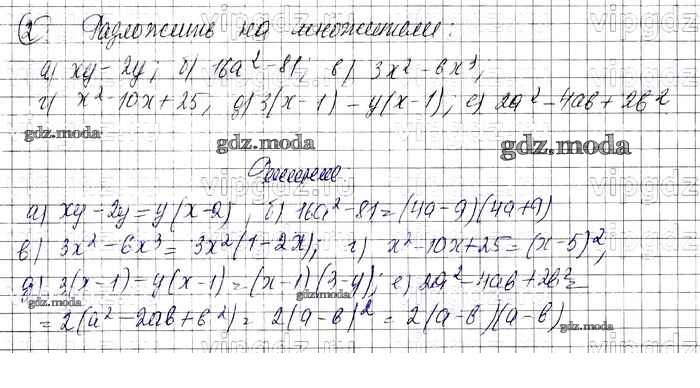 2 Разложить на множители:
а) xy - 2y; б) 16a² - 81; в) 3x² - 6x³;
г) x² - 10x + 25; д) 3(x - 1) - y(x - 1); е) 2a² - 4ab + 2b²
gdz.moda gdz.moda gdz.moda
Решение
а) xy - 2y = y(x - 2), б) 16a² - 81 = (4a - 9)(4a + 9)
в) 3x² - 6x³ = 3x²(1 - 2x); г) x² - 10x + 25 = (x - 5)²;
д) 3(x - 1) - y(x - 1) = (x - 1)(3 - y); е) 2a² - 4ab + 2b² =
gdz.moda gdz.moda
= 2(a² - 2ab + b²) = 2(a - b)² = 2(a - b)(a - b)
gdz.moda gdz.moda